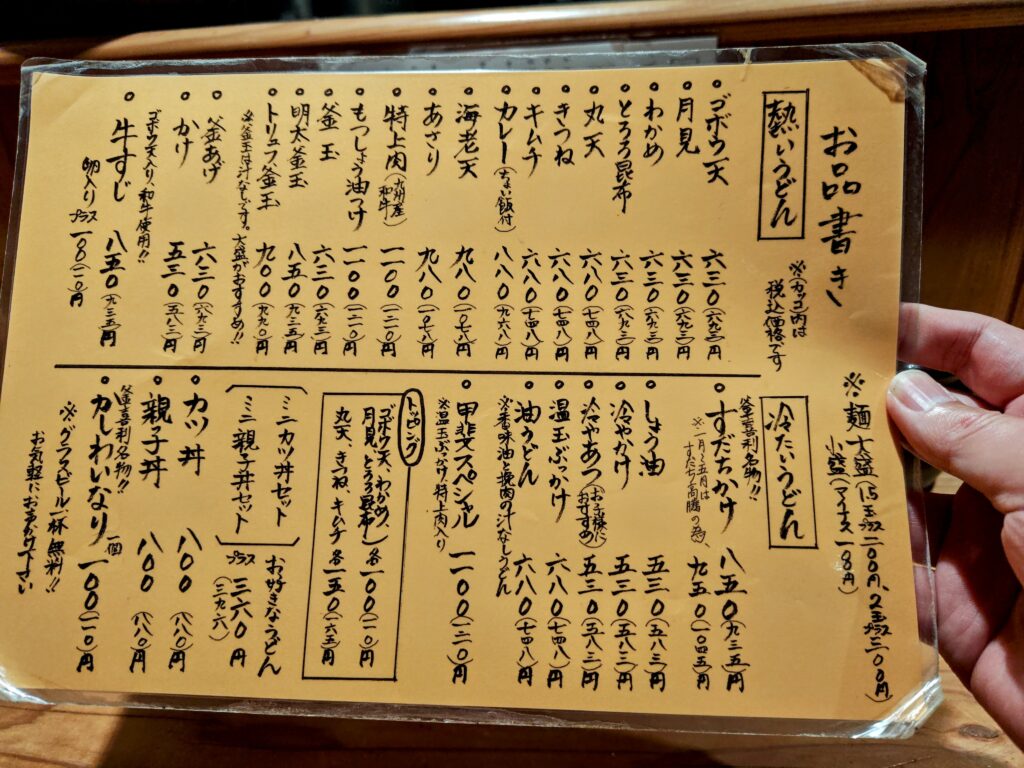 お品書き
※カッコ内は
税込価格です
※麺 大盛(1.5玉プラス二〇〇円、2玉プラス三〇〇円)
小盛(マイナス一八円)
熱いうどん
ゴボウ天 六三〇(六九三)円
月見 六三〇(六九三)円
わかめ 六三〇(六九三)円
とろろ昆布 六三〇(六九三)円
丸天 六八〇(七四八)円
きつね 六八〇(七四八)円
キムチ 六八〇(七四八)円
カレー(ちょい飯付) 八八〇(九六八)円
海老天 九八〇(一〇七八)円
あさり 九八〇(一〇七八)円
特上肉(九州産和牛) 一一〇〇(一二一〇)円
もつしょう油つけ 一一〇〇(一二一〇)円
釜玉 六三〇(六九三)円
明太釜玉 八五〇(九三五)円
トリュフ釜玉 九〇〇(九九〇)円
※釜玉は汁なしです。大盛がおすすめ!!
釜あげ 六三〇(六九三)円
かけ 五三〇(五八三)円
ゴボウ天入り、和牛使用!!
牛すじ 八五〇(九三五)円
卵入り プラス一〇〇(一一〇)円
冷たいうどん
釜喜利名物!!
すだちかけ 八五〇(九三五)円
※二月〜五月は
すだち高騰の為、 九五〇(一〇四五)円
しょう油 五三〇(五八三)円
冷やかけ 五三〇(五八三)円
冷やあつ(お子様におすすめ) 五三〇(五八三)円
温玉ぶっかけ 六八〇(七四八)円
油うどん 六八〇(七四八)円
※香味油と挽肉の汁なしうどん
甲斐スペシャル 一一〇〇(一二一〇)円
※温玉ぶっかけ、特上肉入り
トッピング
ゴボウ天、わかめ、
月見、とろろ昆布 各一〇〇(一一〇)円
丸天、きつね、キムチ 各一五〇(一六五)円
ミニカツ丼セット
ミニ親子丼セット
お好きなうどん
プラス 三六〇円
(三九六)
カツ丼 八〇〇(八八〇)円
親子丼 八〇〇(八八〇)円
釜喜利名物!!
かしわいなり 一個 一〇〇(一一〇)円
※グラスビール一杯無料!!
お気軽にお声がけ下さい